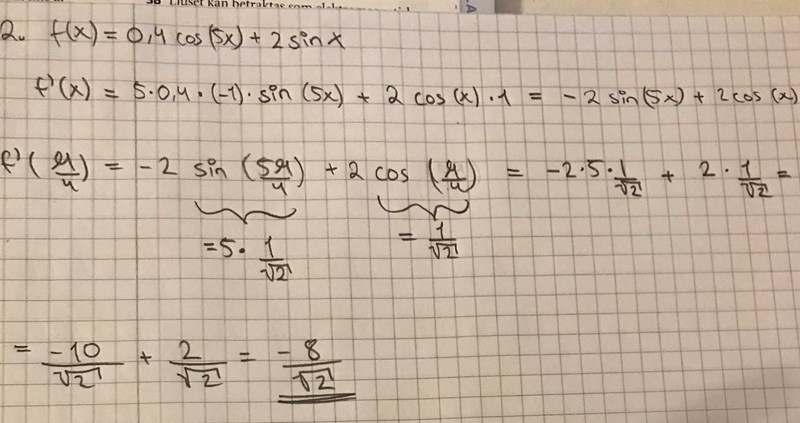 38 Ljuset kan betraktas som
2. f(x) = 0,4 cos(5x) + 2 sin x
f'(x) = 5·0,4·(-1)·sin(5x) + 2 cos(x)·1 = -2 sin(5x) + 2 cos(x)
f'(π/4) = -2 sin(5π/4) + 2 cos(π/4) = -2·5·1/√2 + 2·1/√2 =
=5·1/√2 = 1/√2
= -10/√2 + 2/√2 = -8/√2